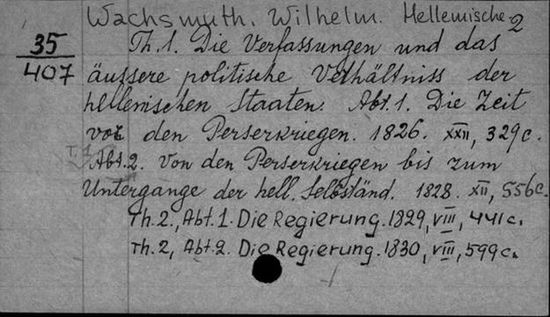 Wachsmuth. Wilhelm. Hellenische 2
35
407
Th. 1. Die Verfassungen und das
äussere politische Verhältniss der
hellenischen Staaten. Abt. 1. Die Zeit
vor den Perserkriegen. 1826. XXII, 329 c.
T. 1
Abt. 2. Von den Perserkriegen bis zum
Untergange der hell. Selbständ. 1828. XII, 556 c.
Th. 2., Abt. 1. Die Regierung. 1829, VIII, 441 c.
Th. 2, Abt. 2. Die Regierung. 1830, VIII, 599 c.